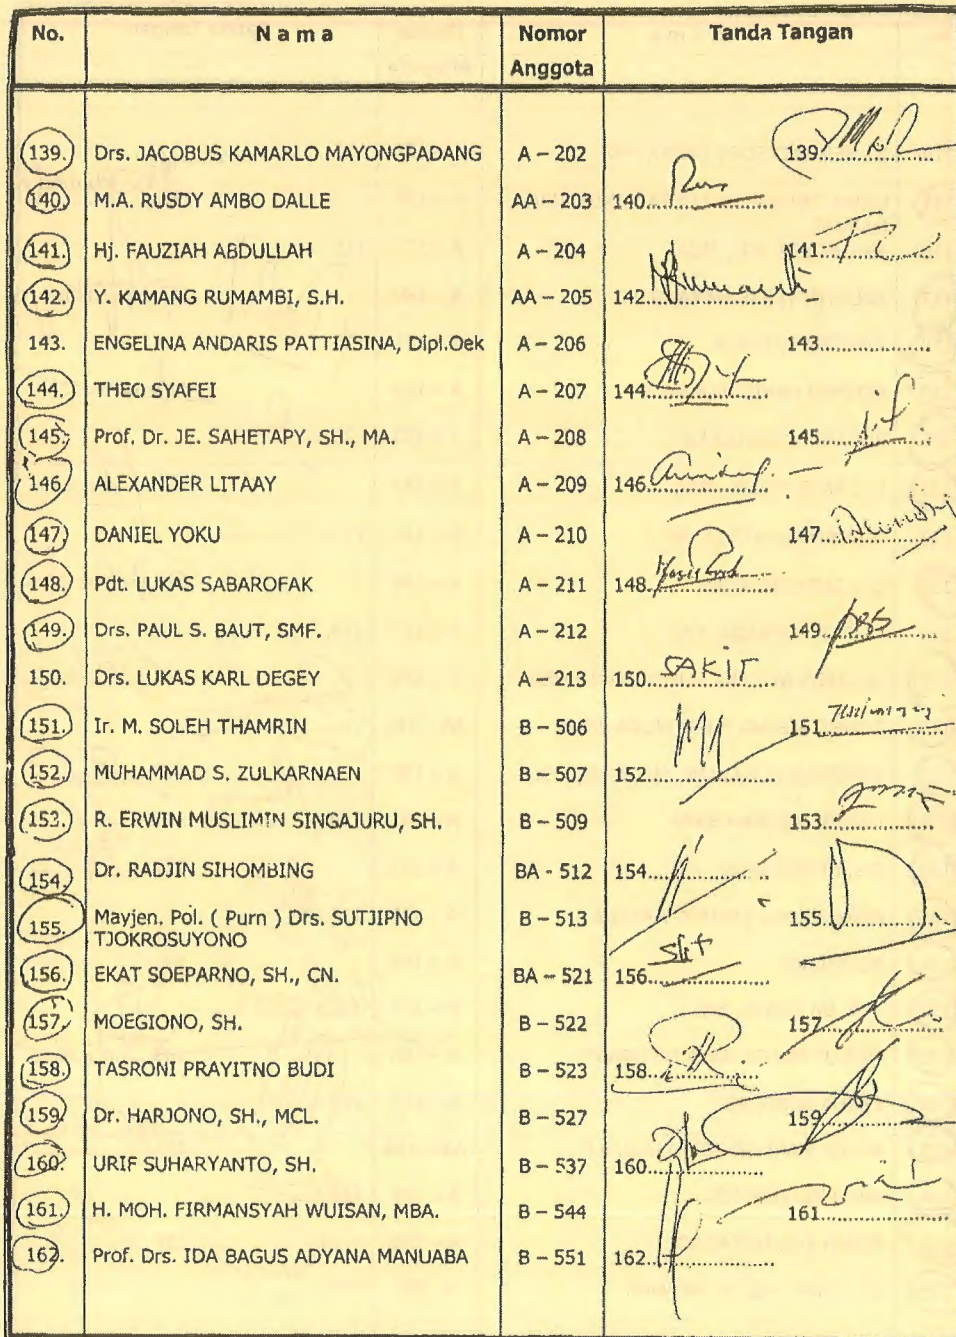 No. Nama Nomor Anggota Tanda Tangan
139. Drs. JACOBUS KAMARLO MAYONGPADANG A – 202 139
140. M.A. RUSDY AMBO DALLE AA – 203 140
141. Hj. FAUZIAH ABDULLAH A – 204 141
142. Y. KAMANG RUMAMBI, S.H. AA – 205 142
143. ENGELINA ANDARIS PATTIASINA, Dipl.Oek A – 206 143
144. THEO SYAFEI A – 207 144
145. Prof. Dr. JE. SAHETAPY, SH., MA. A – 208 145
146. ALEXANDER LITAAY A – 209 146
147. DANIEL YOKU A – 210 147
148. Pdt. LUKAS SABAROFAK A – 211 148
149. Drs. PAUL S. BAUT, SMF. A – 212 149
150. Drs. LUKAS KARL DEGEY A – 213 150 SAKIT
151. Ir. M. SOLEH THAMRIN B – 506 151
152. MUHAMMAD S. ZULKARNAEN B – 507 152
153. R. ERWIN MUSLIMIN SINGAJURU, SH. B – 509 153
154. Dr. RADJIN SIHOMBING BA - 512 154
155. Mayjen. Pol. ( Purn ) Drs. SUTJIPNO B – 513 155
TJOKROSUYONO
156. EKAT SOEPARNO, SH., CN. BA – 521 156
157. MOEGIONO, SH. B – 522 157
158. TASRONI PRAYITNO BUDI B – 523 158
159. Dr. HARJONO, SH., MCL. B – 527 159
160. URIF SUHARYANTO, SH. B – 537 160
161. H. MOH. FIRMANSYAH WUISAN, MBA. B – 544 161
162. Prof. Drs. IDA BAGUS ADYANA MANUABA B – 551 162